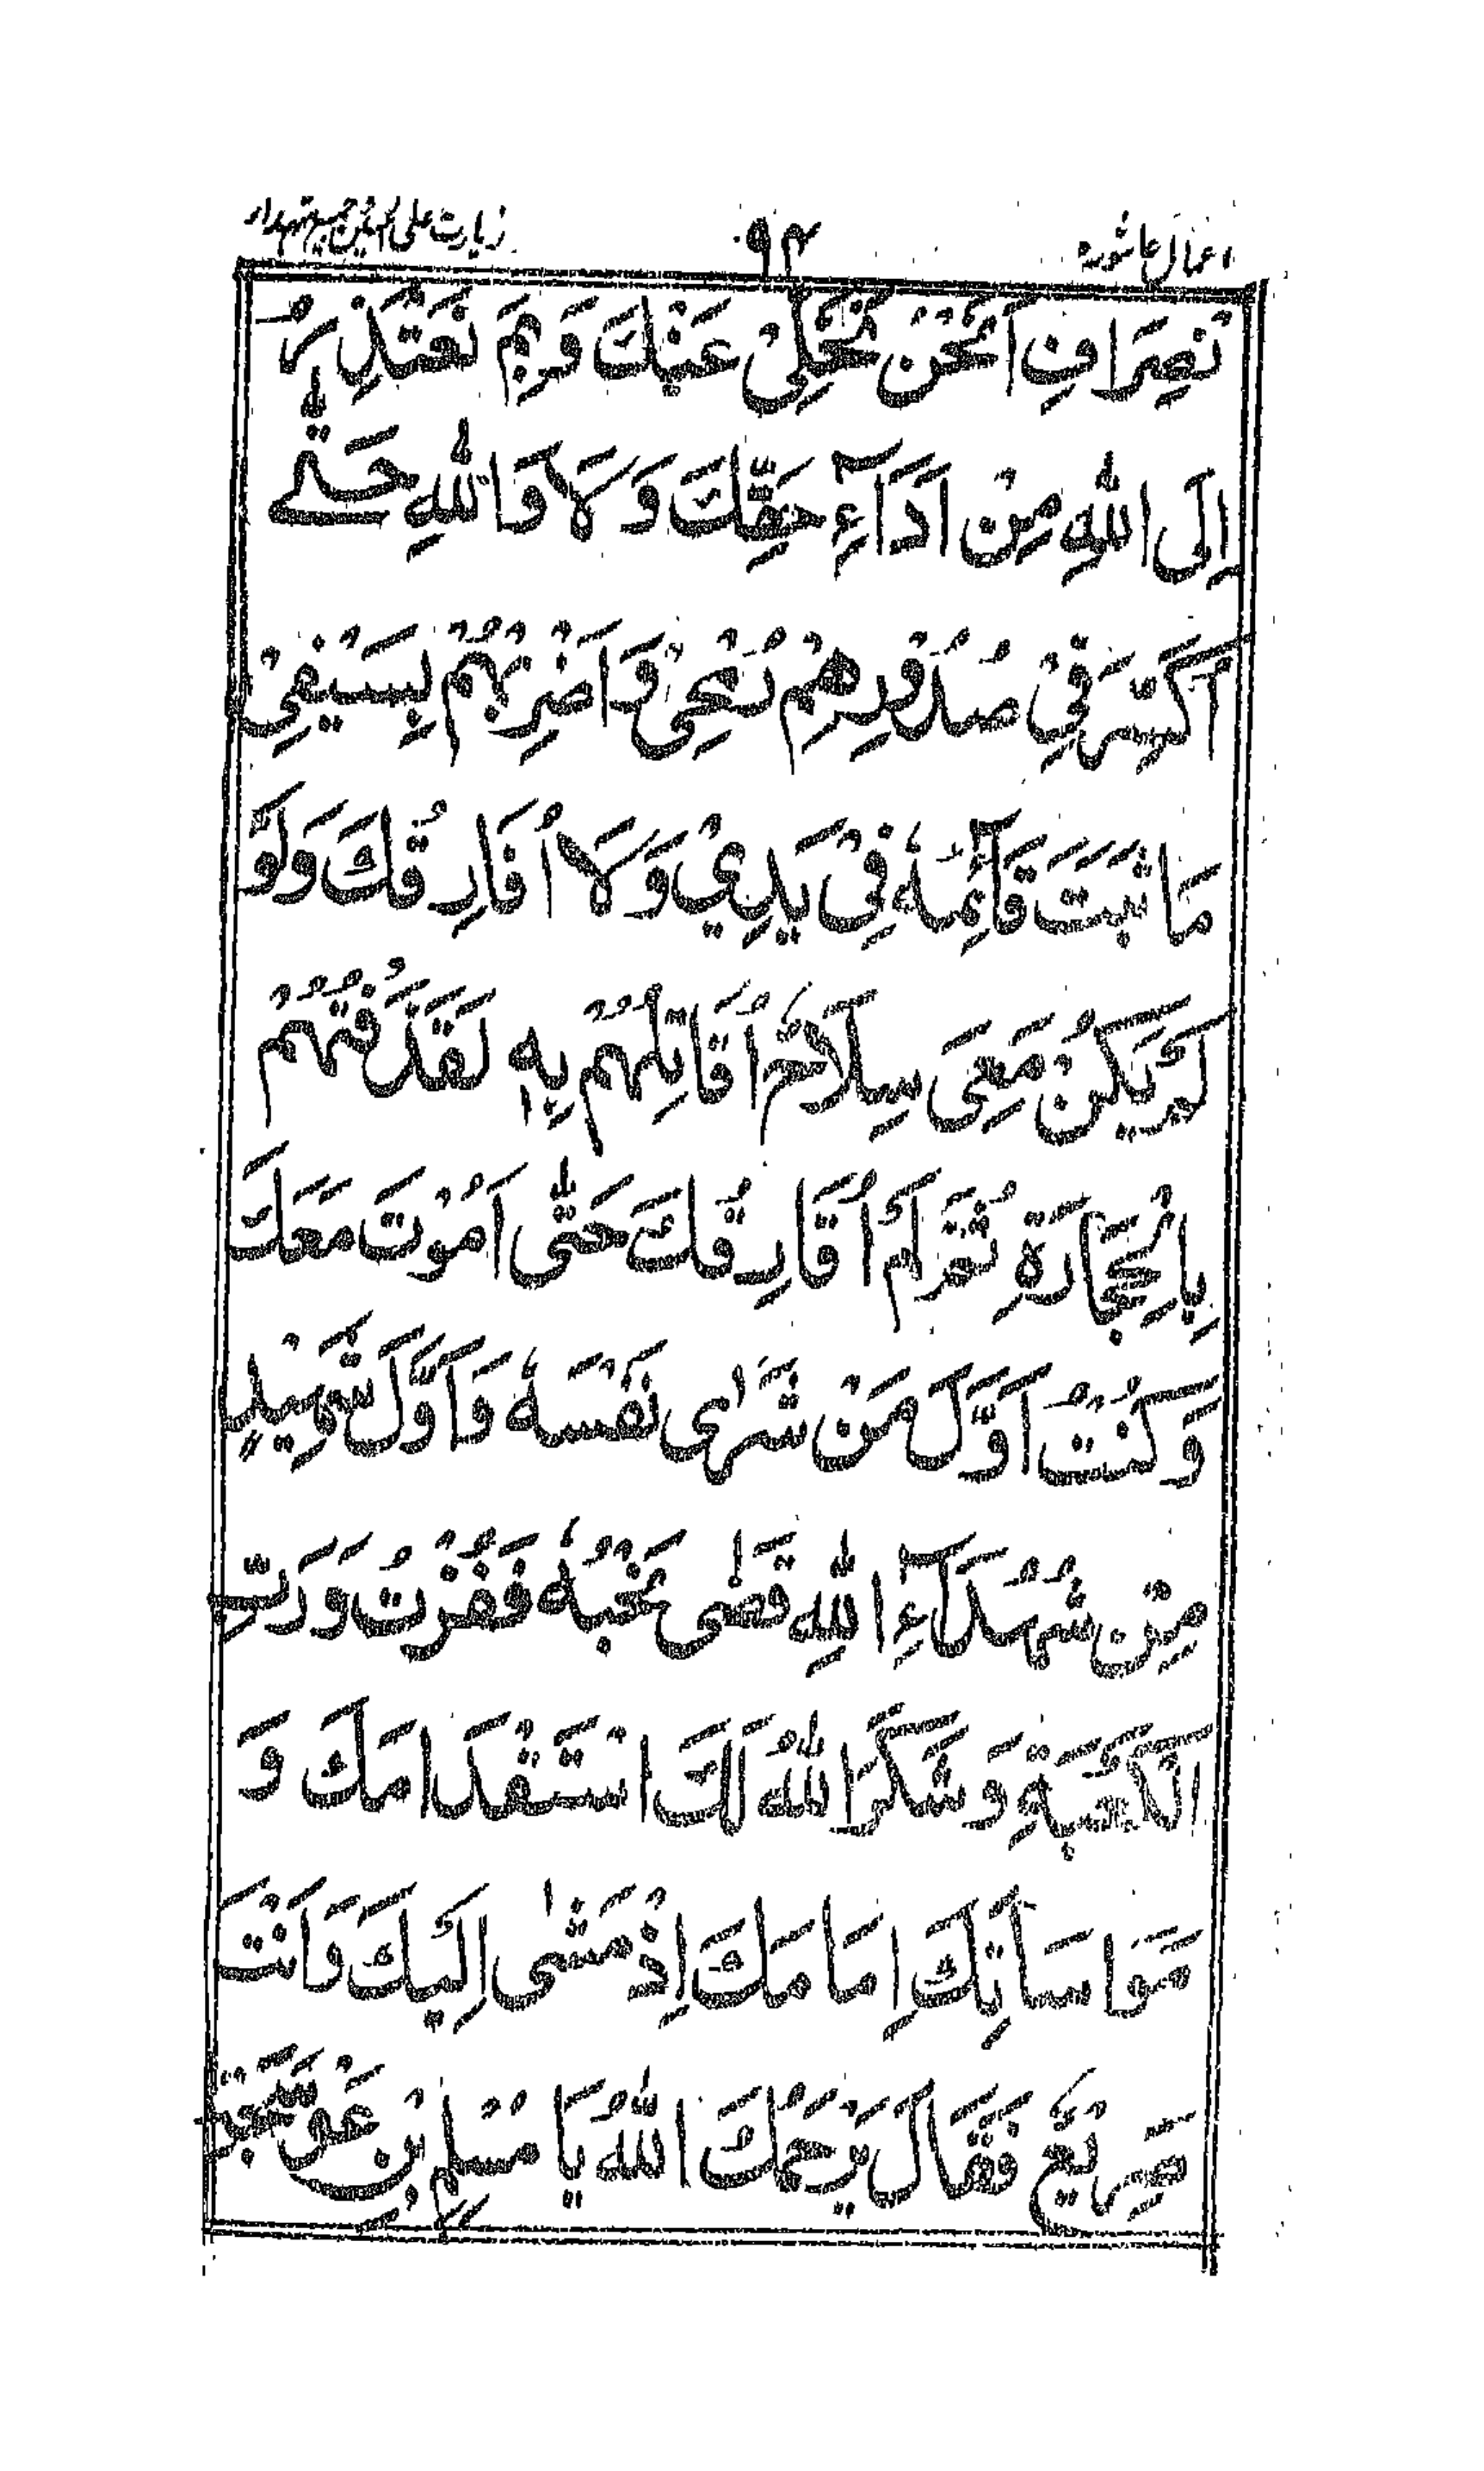 اعمال عاشوره ۹۴ زیارت علی
نَصِرَافِ اَنَحْنُ نُخَلِّیْ عَنْكَ وَبِمَ نَعْتَذِرُ
اِلَی اللّٰهِ مِنْ اَدَآءِ حَقِّكَ وَلَا وَاللّٰهِ حَتّٰے
اَكْسِرَ فِیْ صُدُوْرِهِمْ رُمْحِیْ وَاَضْرِبَهُمْ بِسَیْفِیْ
مَا ثَبَتَ قَآئِمُهٗ فِیْ یَدِیْ وَلَا اُفَارِقُكَ وَلَوْ
لَمْ یَكُنْ مَعِیَ سِلَاحٌ اُقَاتِلُهُمْ بِهٖ لَقَذَفْتُهُمْ
بِالْحِجَارَةِ ثُمَّ لَمْ اُفَارِقْكَ حَتّٰی اَمُوْتَ مَعَكَ
وَكُنْتَ اَوَّلَ مَنْ شَرٰی نَفْسَهٗ وَاَوَّلَ شَهِیْدٍ
مِنْ شُهَدَآءِ اللّٰهِ قَضٰی نَحْبَهٗ فَفُزْتَ وَرَبِّ
الْكَعْبَةِ وَشَكَرَ اللّٰهُ لَكَ اسْتِقْدَامَكَ وَ
مَوَاسَاتِكَ اِمَامَكَ اِذْ مَشٰی اِلَیْكَ وَاَنْتَ
صَرِیْعٌ فَقَالَ یَرْحَمُكَ اللّٰهُ یَا مُسْلِمَ بْنَ عَوْسَجَةَ